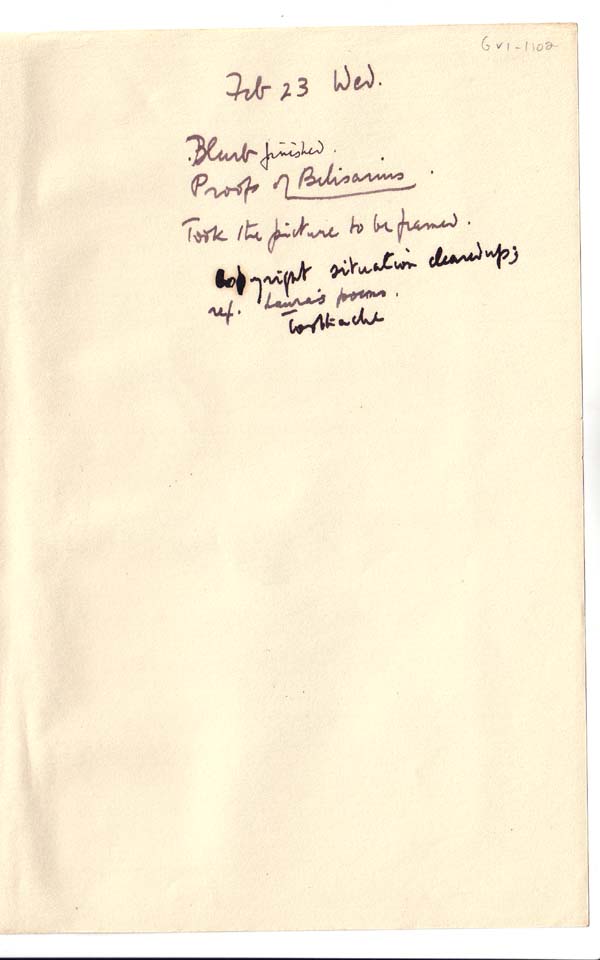 GV1-1102
Feb 23 Wed.
Blurb finished.
Proofs of Belisarius.
Took the picture to be framed.
Copyright situation cleared up;
ref. Laura's poems.
Toothache